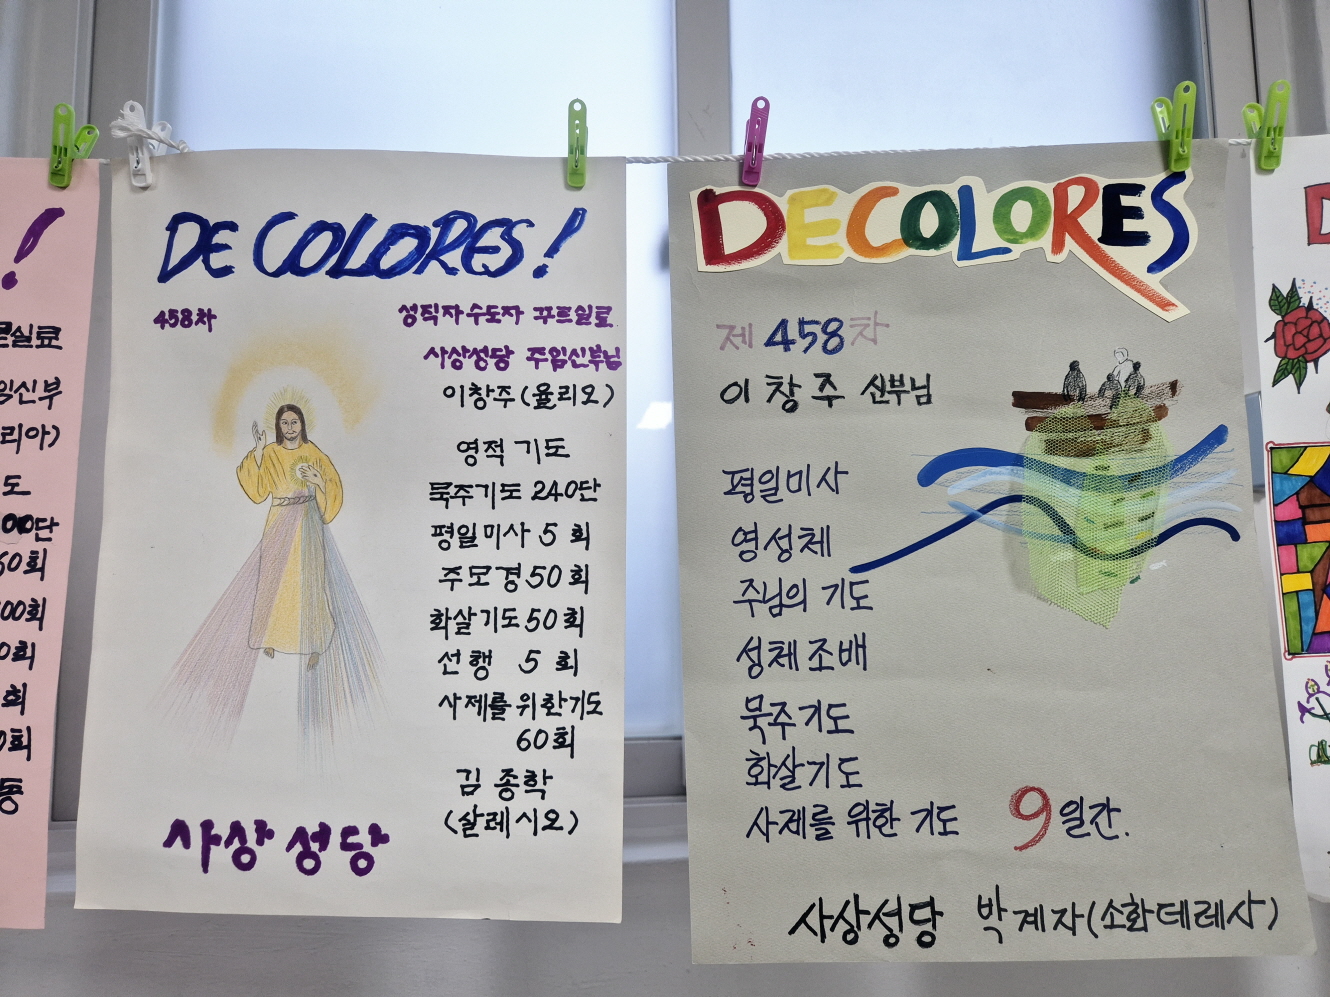 !
실코
임신부
리아)
도
00단
60회
00회
0회
회
0회
동
DE COLORES!
458차
성직자수도자 꾸르실료
사상성당 주임신부님
이창주(율리오)
영적 기도
묵주기도 240단
평일미사 5 회
주모경 50회
화살기도 50회
선행 5 회
사제를 위한기도
60회
김 종학
(살레시오)
사상성당
DECOLORES
제 458차
이 창 주 신부님
평일미사
영성체
주님의 기도
성체조배
묵주기도
화살기도
사제를 위한 기도 9일간.
사상성당 박계자(소화데레사)